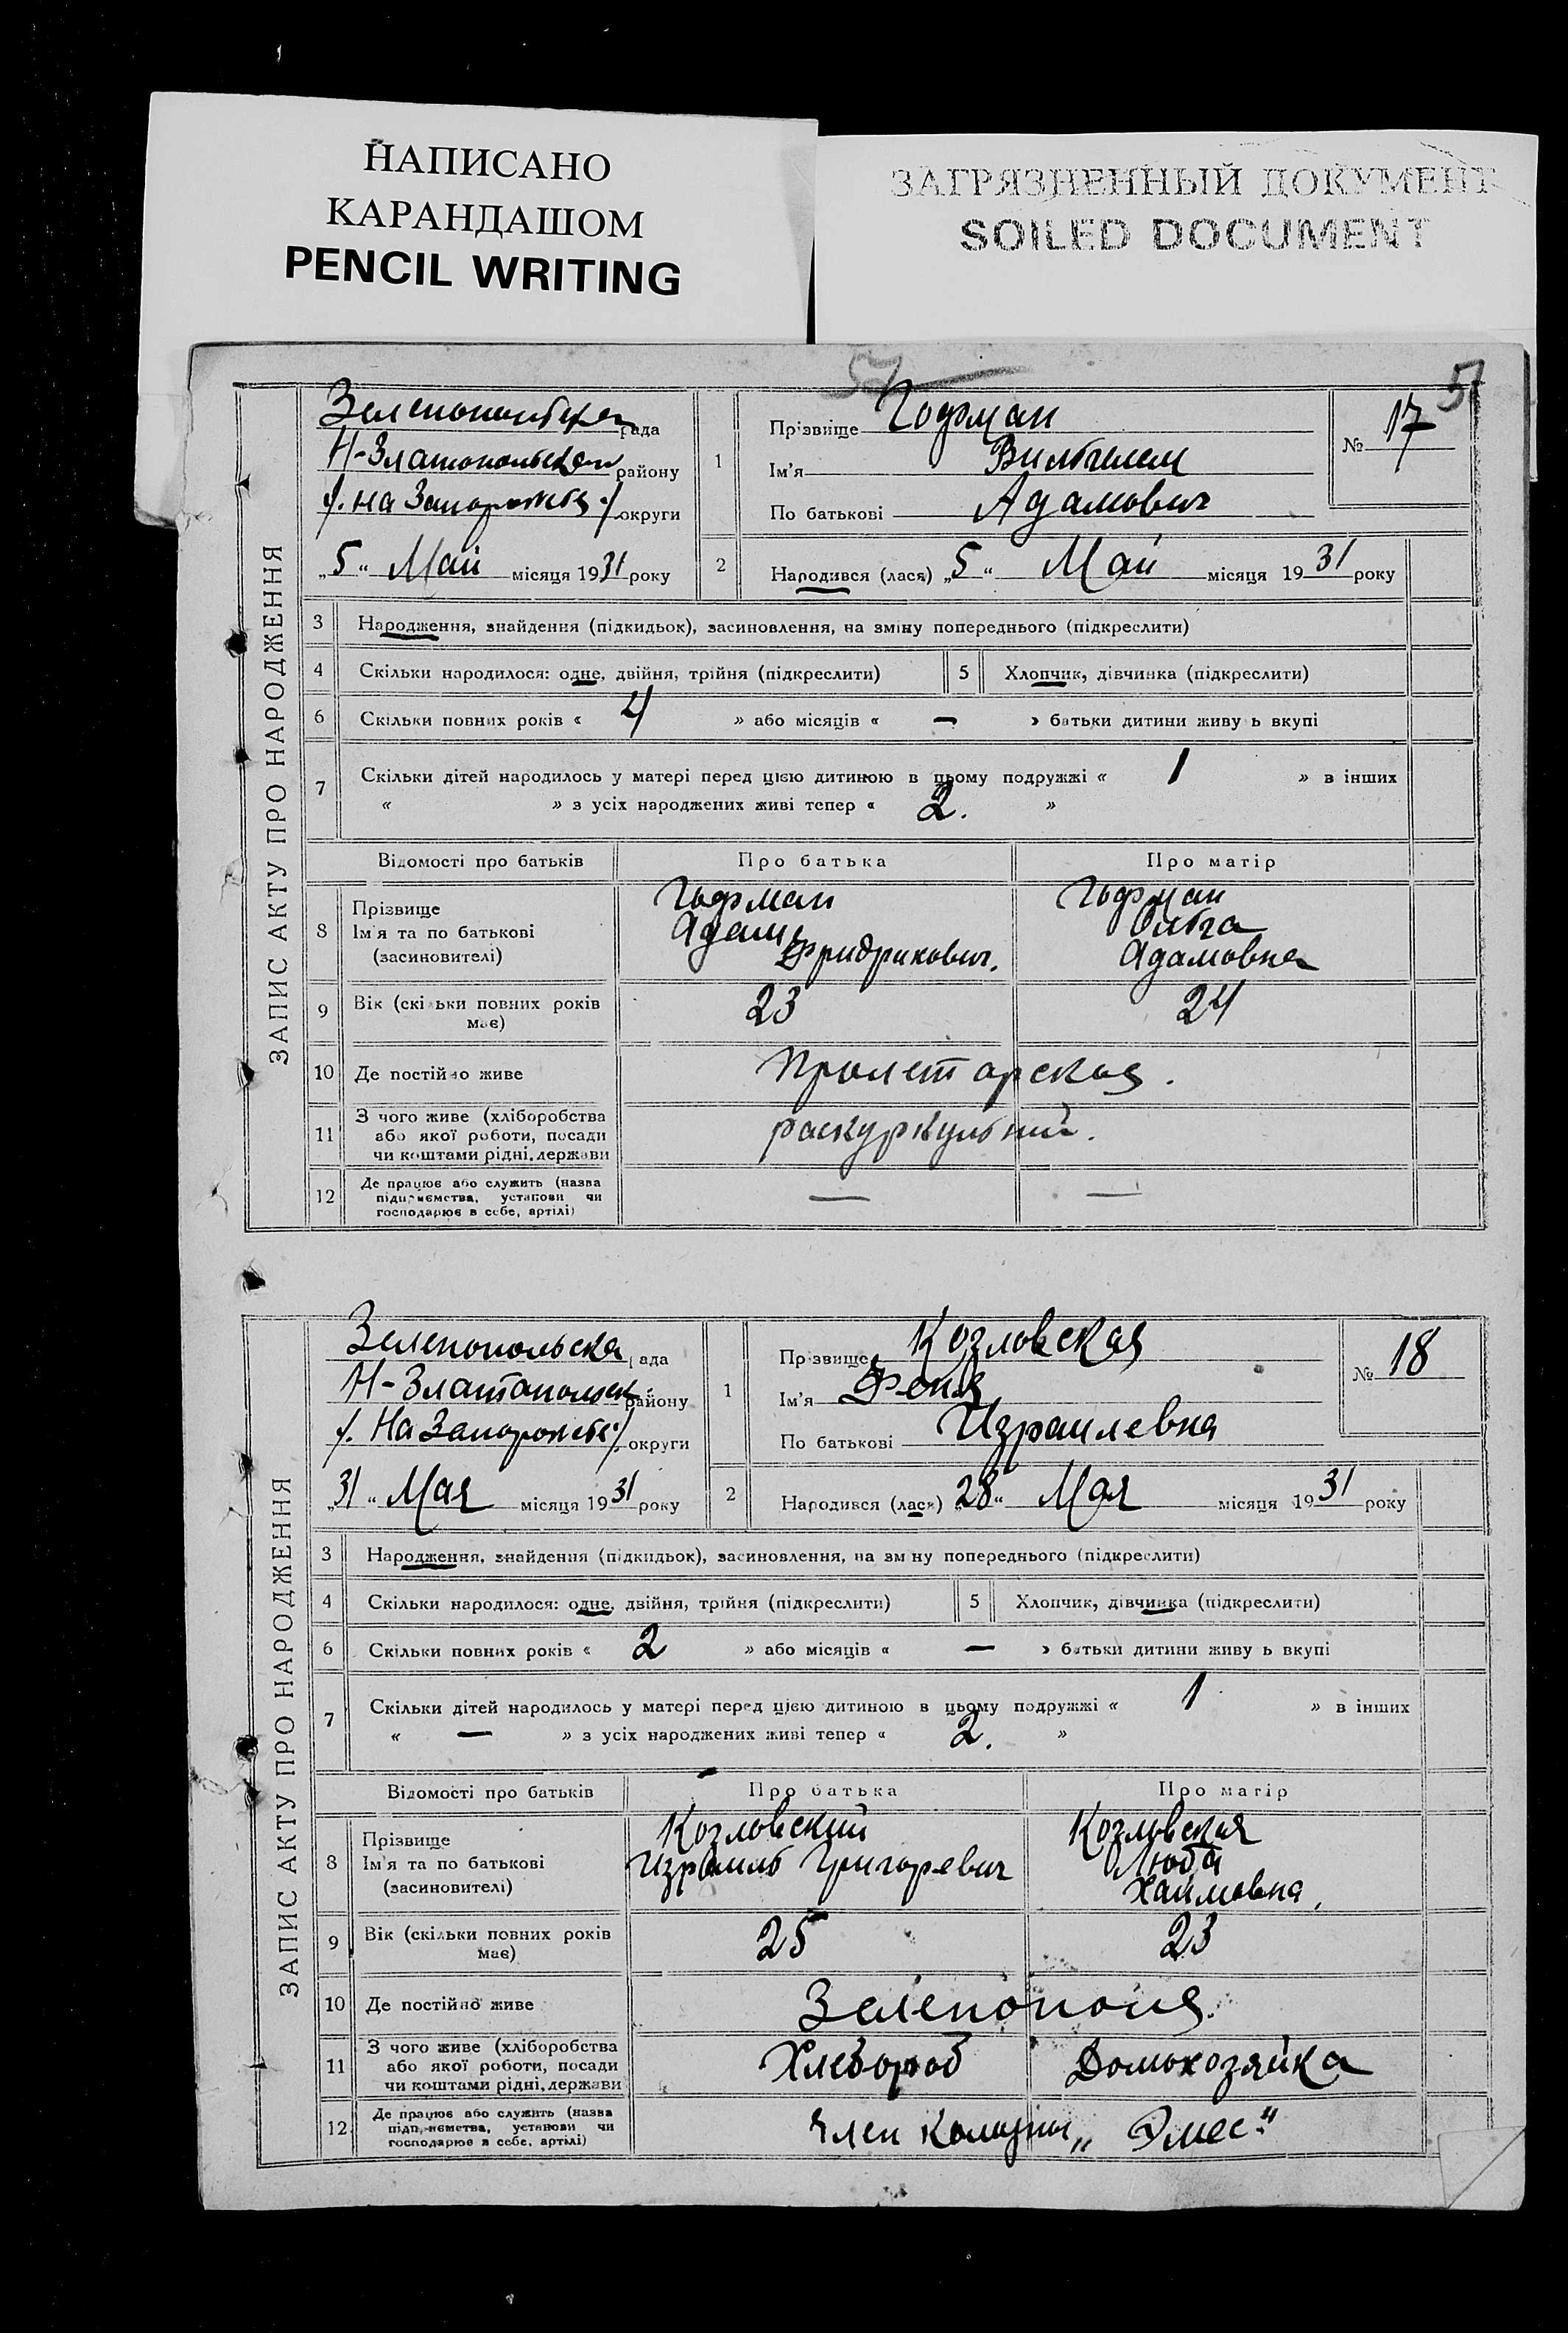 НАПИСАНО
КАРАНДАШОМ
PENCIL WRITING
ЗАГРЯЗНЕННЫЙ ДОКУМЕНТ
SOILED DOCUMENT
ЗАПИС АКТУ ПРО НАРОДЖЕННЯ
рада
Н-Златопольской району
/. на Запорожье ./ округи
„5" Май місяця 1931 року
1
Прізвище Гофман
Ім'я Вильгельм
По батькові Адамович
№ 17
2
Народився (лася) „5" Май місяця 1931 року
3 Народження, знайдення (підкидьок), засиновлення, на зміну попереднього (підкреслити)
4 Скільки народилося: одне, двійня, трійня (підкреслити) 5 Хлопчик, дівчинка (підкреслити)
6 Скільки повних років « 4 » або місяців « — » батьки дитини живуть вкупі
7 Скільки дітей народилось у матері перед цією дитиною в цьому подружжі « 1 » в інших
« » з усіх народжених живі тепер « 2. »
Відомості про батьків Про батька Про матір
8 Прізвище Гофман Гофман
Ім'я та по батькові Адам Ольга
(засиновителі) Фридрихович. Адамовна
9 Вік (скільки повних років має) 23 24
10 Де постійно живе Пролетарская.
11 З чого живе (хліборобства
або якої роботи, посади раскуркульний.
чи коштами рідні, держави
12 Де працює або служить (назва
підприємства, установи чи — —
господарює в себе, артілі)
ЗАПИС АКТУ ПРО НАРОДЖЕННЯ
Зеленопольска рада
Н-Златопольск. району
/. На Запорожье ./ округи
„31" Мая місяця 1931 року
1
Прізвище Козловская
Ім'я Феня
По батькові Израилевна
№ 18
2
Народився (лася) „28" Мая місяця 1931 року
3 Народження, знайдення (підкидьок), засиновлення, на зміну попереднього (підкреслити)
4 Скільки народилося: одне, двійня, трійня (підкреслити) 5 Хлопчик, дівчинка (підкреслити)
6 Скільки повних років « 2 » або місяців « — » батьки дитини живуть вкупі
7 Скільки дітей народилось у матері перед цією дитиною в цьому подружжі « 1 » в інших
« — » з усіх народжених живі тепер « 2. »
Відомості про батьків Про батька Про матір
8 Прізвище Козловский Козловская
Ім'я та по батькові Израиль Григоревич Люба
(засиновителі) Хаимовна
9 Вік (скільки повних років має) 25 23
10 Де постійно живе Зеленополя.
11 З чого живе (хліборобства
або якої роботи, посади Хлебороб Домохозяйка
чи коштами рідні, держави
12 Де працює або служить (назва
підприємства, установи чи Член Комуны „Эмес"
господарює в себе, артілі)